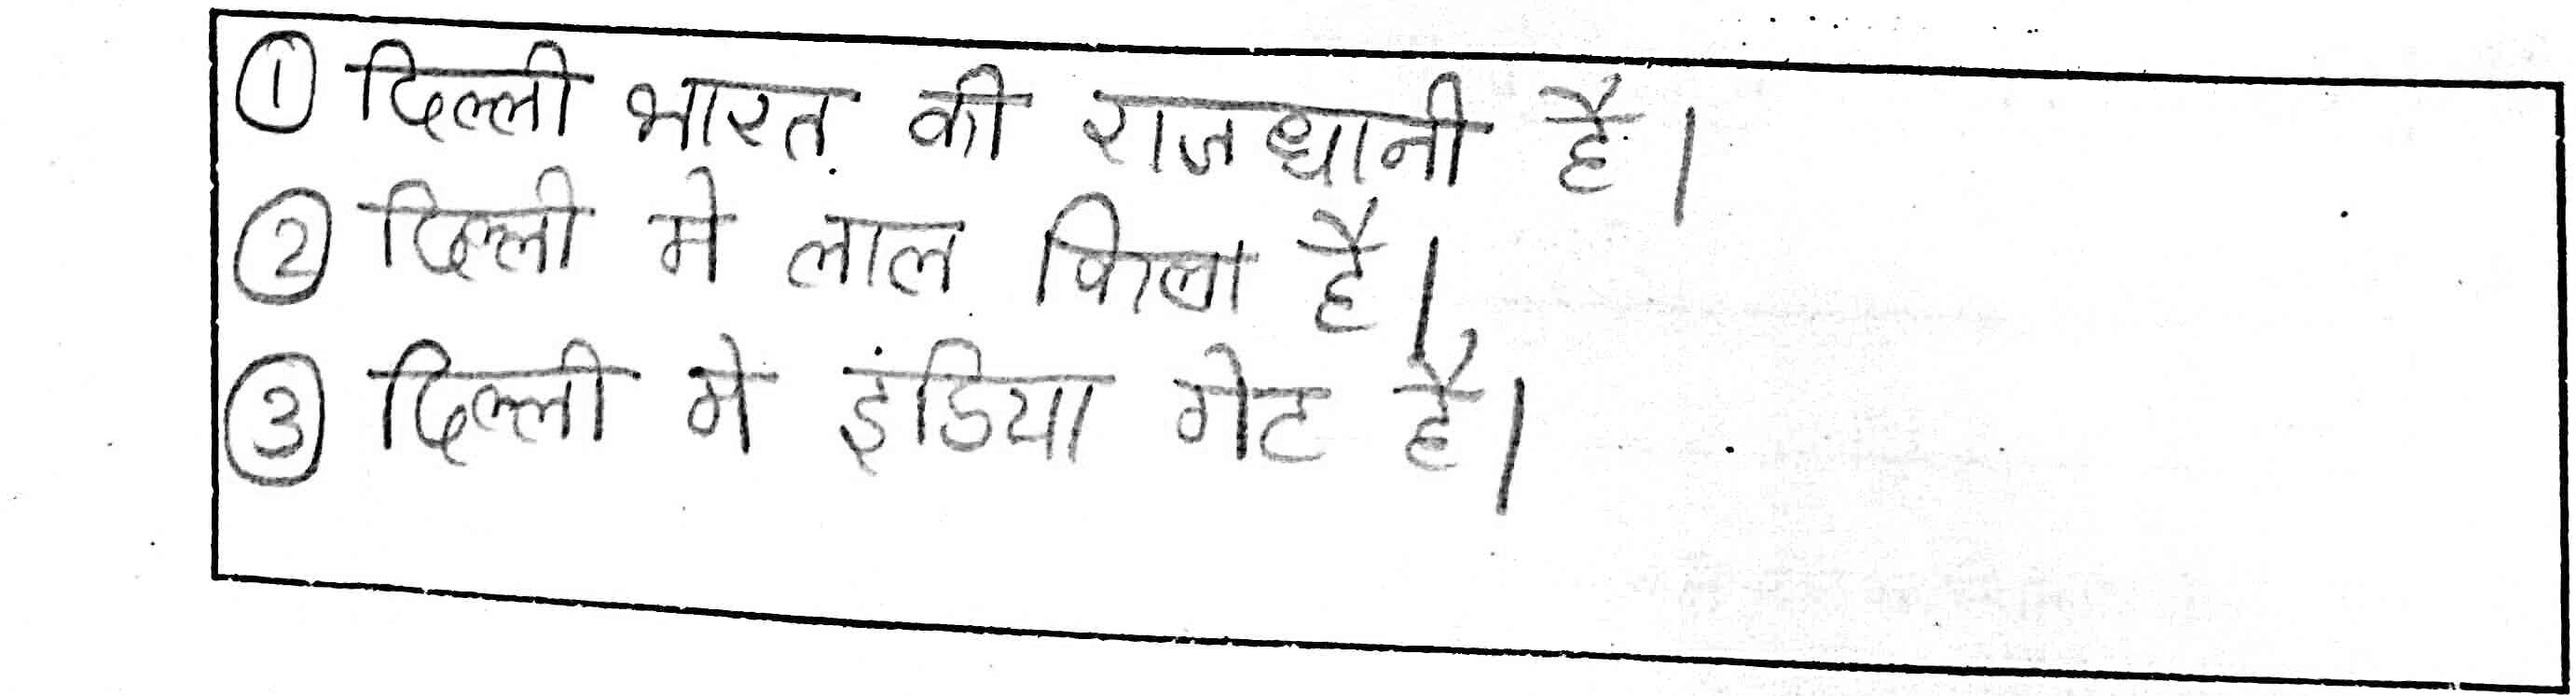 ① दिल्ली भारत की राजधानी है।
② दिल्ली मे लाल किला है।
③ दिल्ली मे इंडिया गेट है।